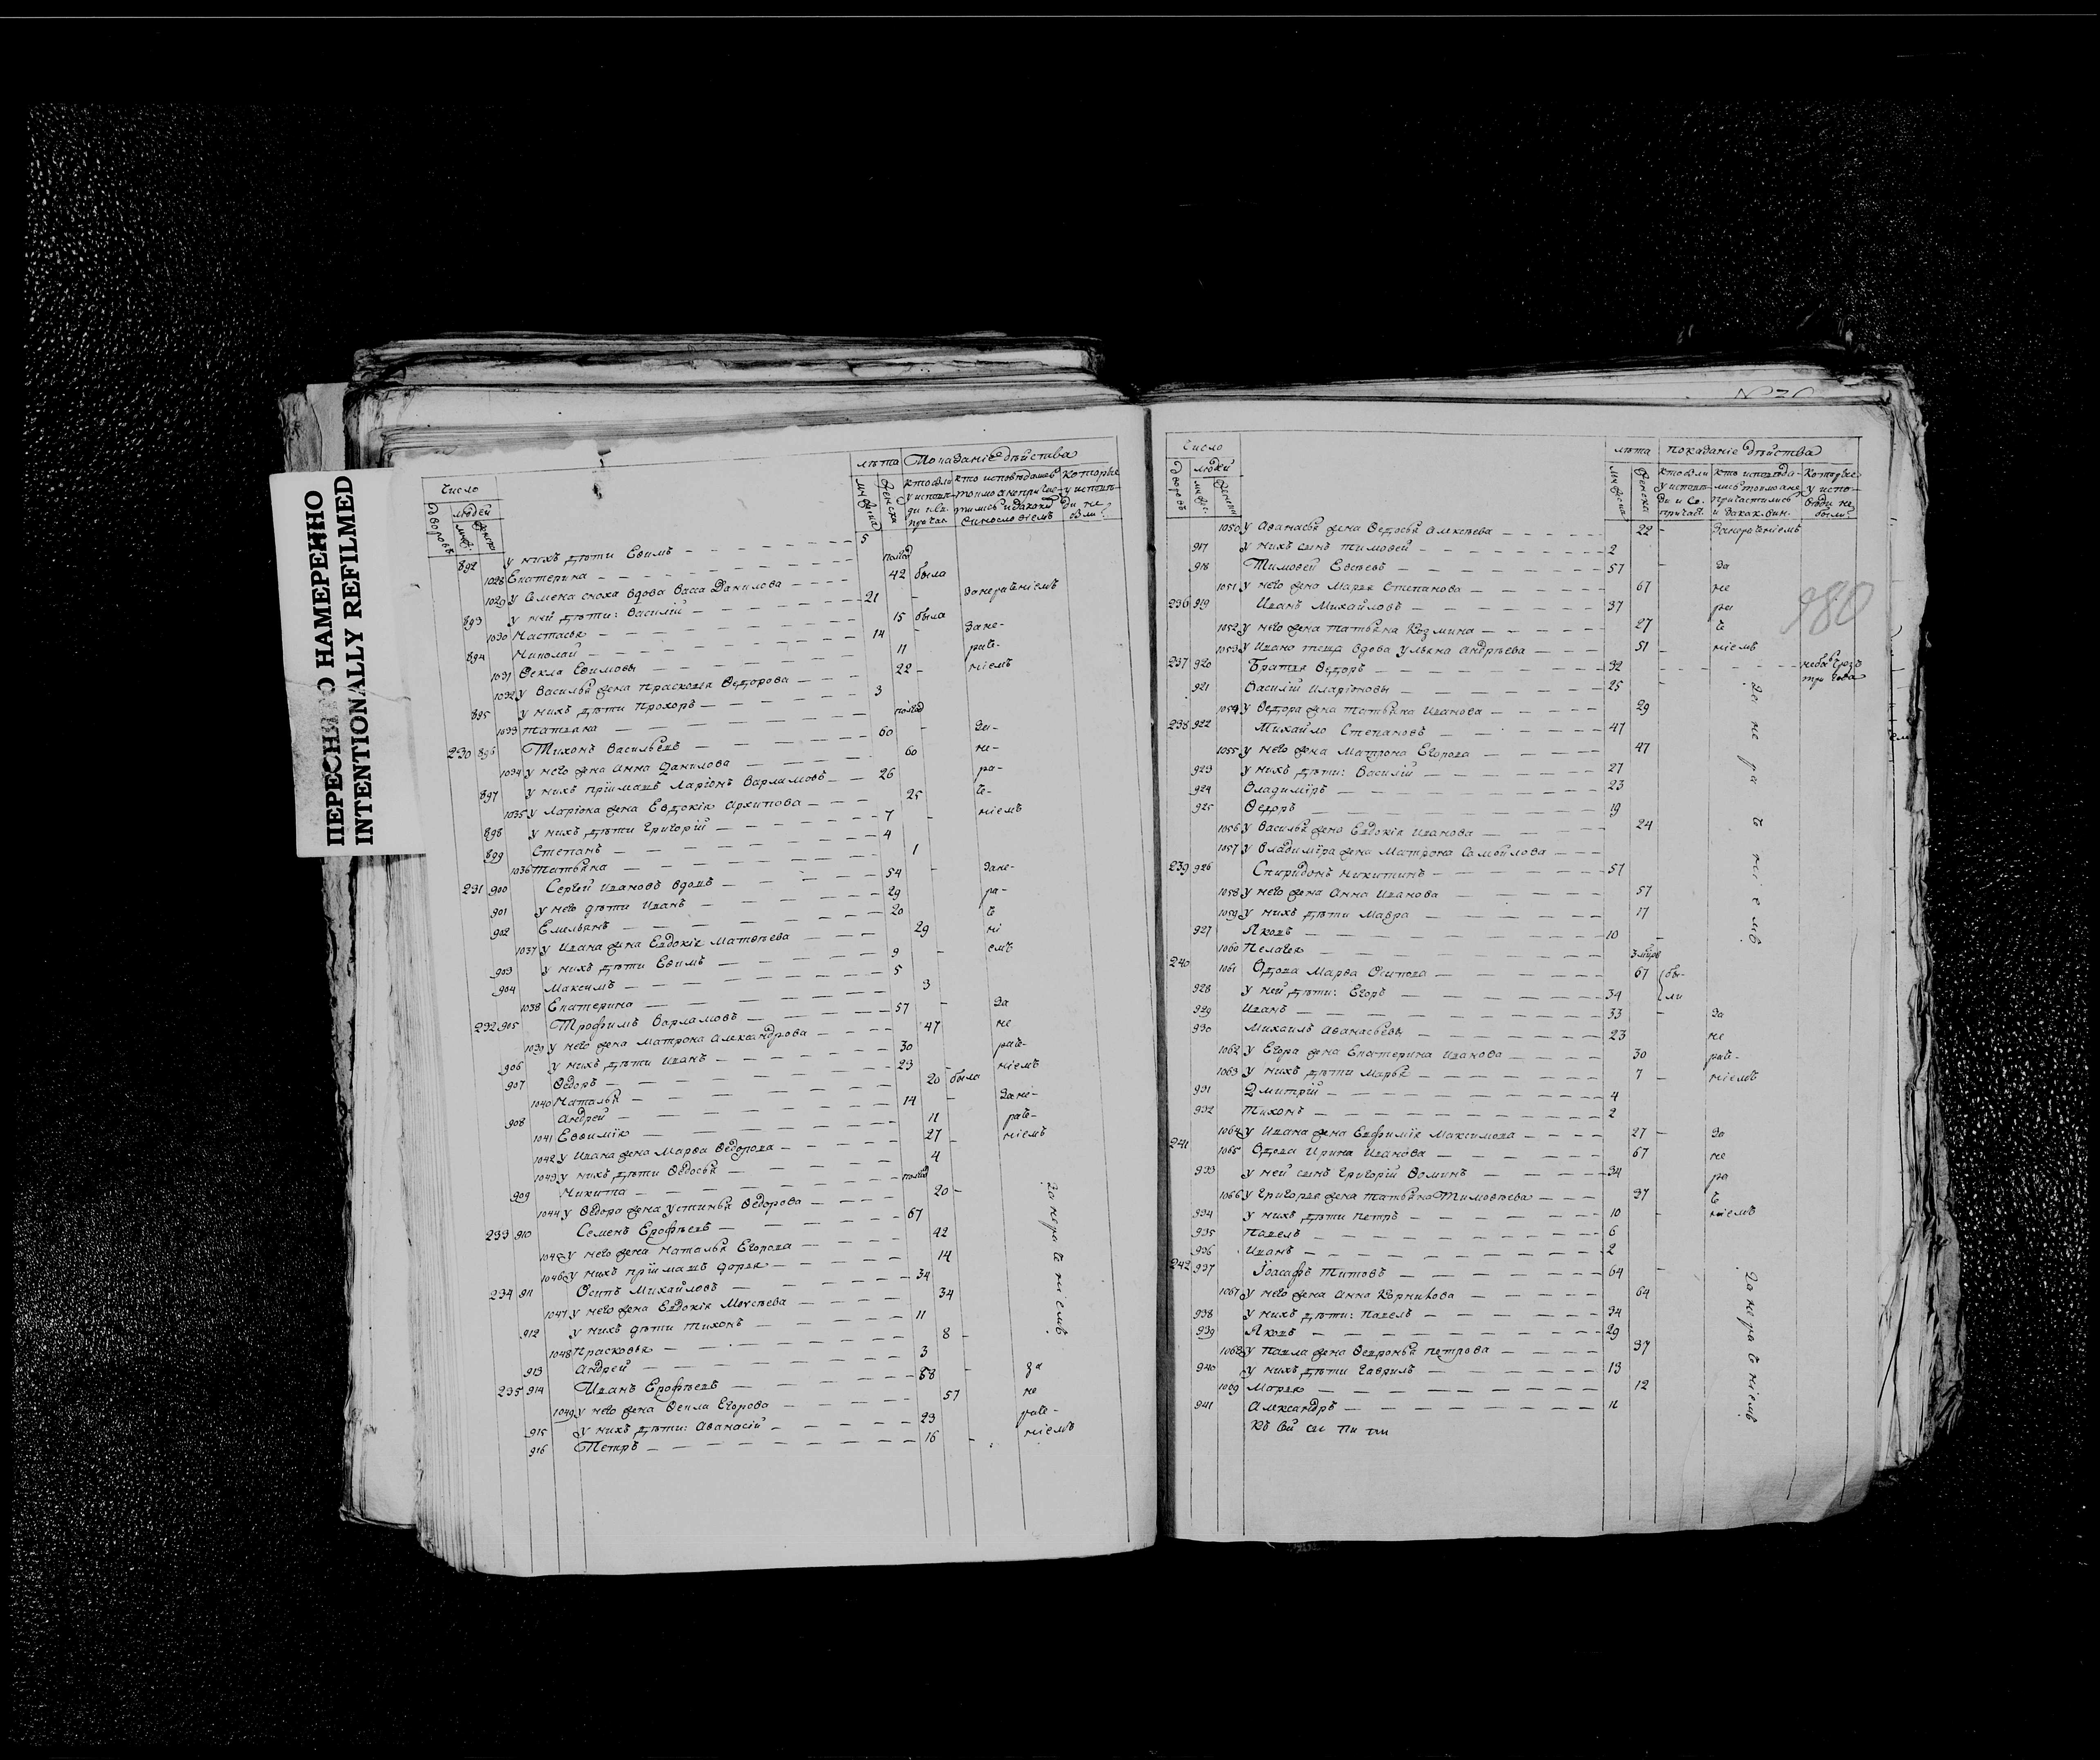 ПЕРЕСНЯТО НАМЕРЕННО
INTENTIONALLY REFILMED
Число
лѣта Показаніе дѣйства
дворовъ людей
892 у нихъ дѣти Евимъ 5
1028 Екатерина полгод
1029 у Семена сноха вдова Васса Данилова 42 была
893 у ней дѣти: Василій 21 занераченіемъ
1030 Настасья 15 была
894 Николай 14 зане-
1031 Текла Евимовы 11 раче-
1032 у Василья жена Прасковья Ѳедорова 22 ніемъ
895 у нихъ дѣти Прохоръ 3
1033 Татьяна полгод
230 896 Тихонъ Васильевъ 60 за-
1034 у него жена Анна Данилова 60 не-
897 у нихъ пріимашъ Ларіонъ Варламовъ 26 ра-
1035 у Ларіона жена Евдокія Архипова 25 че-
898 у нихъ дѣти Григорій 7 ніемъ
899 Степанъ 4
1036 Татьяна 1
231 900 Сергѣй Ивановъ вдовъ 54 зане-
901 у него дѣти Иванъ 29 ра-
902 Емельянъ 20 че
1037 у Ивана жена Евдокія Матвѣева 29 ні
903 у нихъ дѣти Евимъ 9 емъ
904 Максимъ 5
1038 Екатерина 3
232 905 Трофимъ Варламовъ 57 за
1039 у него жена Матрона Александрова 47 не
906 у нихъ дѣти Иванъ 30 раче-
907 Ѳедоръ 23 ніемъ
1040 Наталья 20 была
908 Андрей 14 зане-
1041 Евѳимія 11 раче-
1042 у Ивана жена Марѳа Ѳедорова 27 ніемъ
1043 у нихъ дѣти Ѳедосья 4
909 Никита полгод
1044 у Ѳедора жена Устинья Ѳедорова 20
233 910 Семенъ Ерофѣевъ 67 занераченіемъ
1045 у него жена Наталья Егорова 42
1046 у нихъ пріимашъ Дарья 14
234 911 Осипъ Михайловъ 34
1047 у него жена Евдокія Моисѣева 34
912 у нихъ дѣти Тихонъ 11
1048 Прасковья 8
913 Андрей 3
235 914 Иванъ Ерофѣевъ 58 за
1049 у него жена Ѳекла Егорова 57 не
915 у нихъ дѣти: Аѳанасій 23 раче-
916 Петръ 16 ніемъ
Число
лѣта показаніе дѣйства
дворовъ людей
1050 у Аѳанасья жена Ѳедосья Алексѣева 22 занераченіемъ
917 у нихъ сынъ Тимоѳей 2
918 Тимоѳей Евсѣевъ 57 за
1051 у него жена Марья Степанова 67 не
236 919 Иванъ Михайловъ 37 ра
1052 у него жена Татьяна Козмина 27 че
1053 у Ивана теща вдова Ульяна Андрѣева 51 ніемъ
237 920 Братья Ѳедоръ 32
921 Василій Иларіоновы 25
1054 у Ѳедора жена Татьяна Иванова 29
238 922 Михайло Степановъ 47 занераченіемъ
1055 у него жена Матрона Егорова 47
923 у нихъ дѣти: Василій 27
924 Владимѣръ 23
925 Ѳедоръ 19
1056 у Василья жена Евдокія Иванова 24
1057 у Владимѣра жена Матрона Самойлова
239 926 Спиридонъ Никитинъ 57
1058 у него жена Анна Иванова 57
1059 у нихъ дѣти Мавра 17
927 Яковъ 10
1060 Пелагея
240 1061 Вдова Марѳа Осипова 67 бы-
928 у ней дѣти: Егоръ 34 ли
929 Иванъ 33 за
930 Михаилъ Аѳанасьевы 23 не
1062 у Егора жена Екатерина Иванова 30 раче-
1063 у нихъ дѣти Марья 7 ніемъ
931 Дмитрій 4
932 Тихонъ 2
1064 у Ивана жена Евфимія Максимова 27 за
241 1065 Вдова Ирина Иванова 67 не
933 у ней сынъ Григорій Ѳоминъ 34 ра
1066 у Григорья жена Татьяна Тимоѳѣева 37 че
934 у нихъ дѣти Петръ 10 ніемъ
935 Павелъ 6
936 Иванъ 2
242 937 Іоасафъ Титовъ 64 занераченіемъ
1067 у него жена Анна 64
938 у нихъ дѣти: Павелъ 34
939 Яковъ 29
1068 у Павла жена Ѳевронья Петрова 37
940 у нихъ дѣти Гаврилъ 13
1069 Марья 12
941 Александръ 11
980